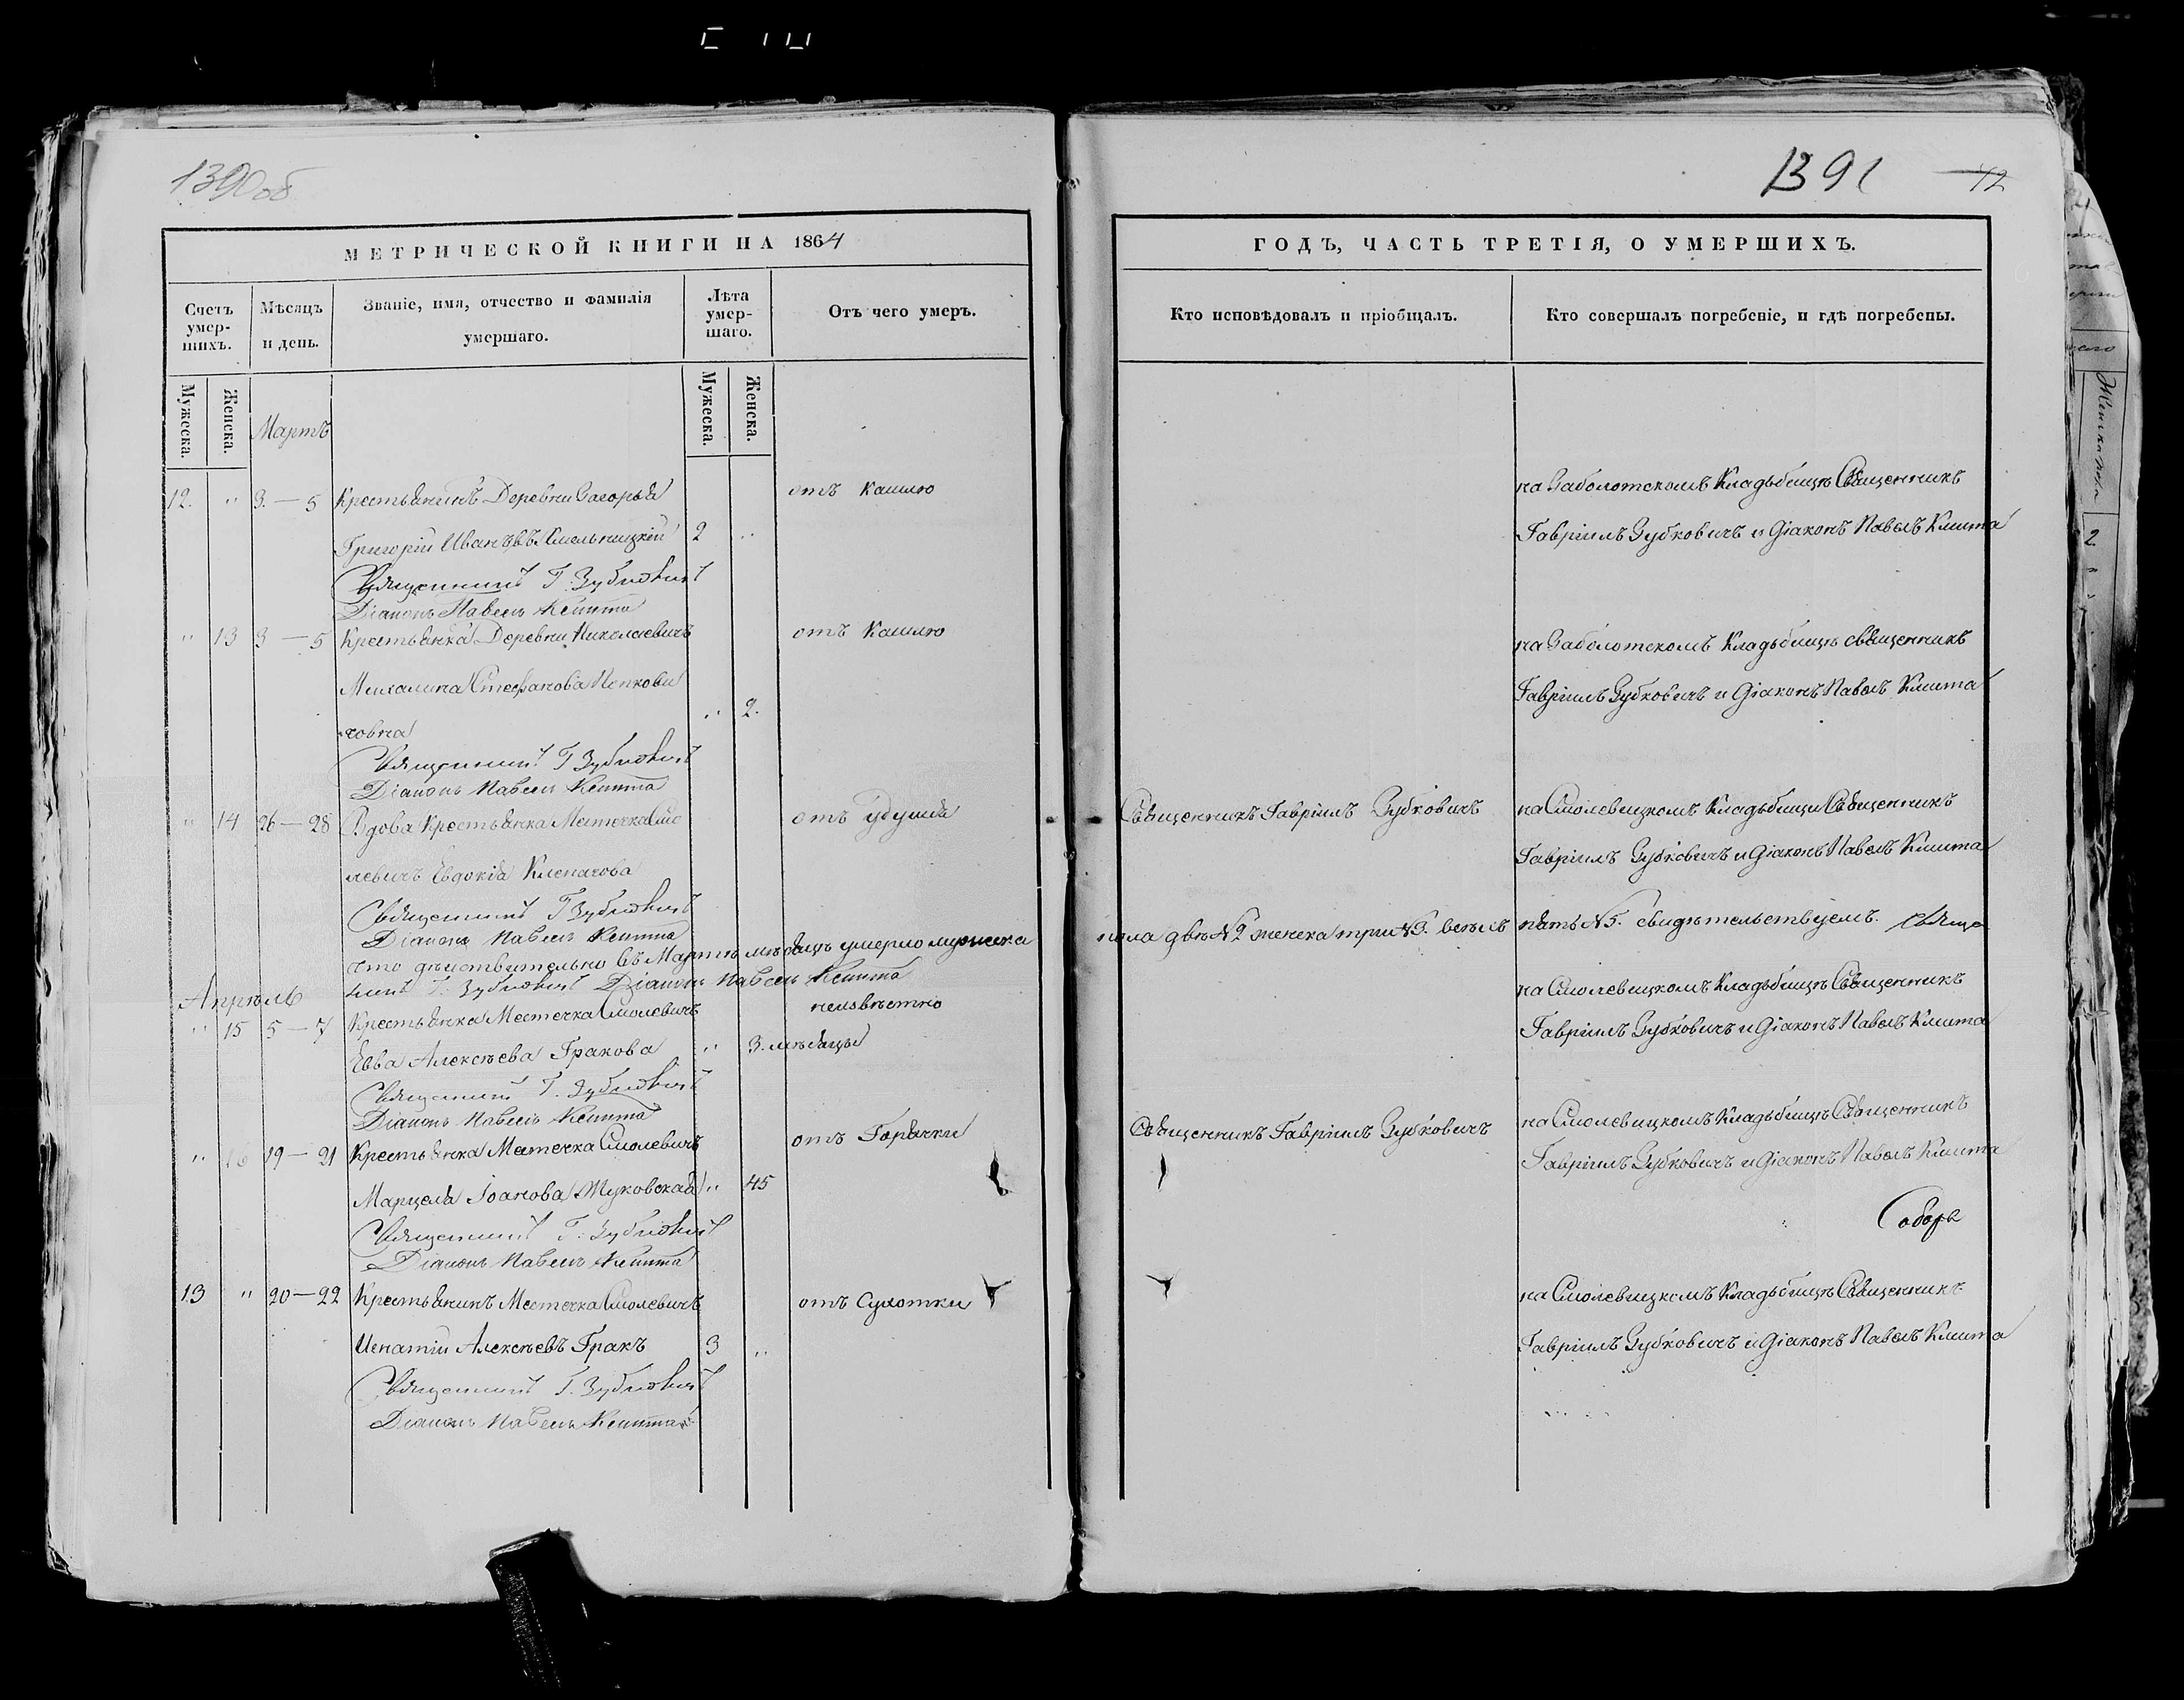 1390об
МЕТРИЧЕСКОЙ КНИГИ НА 1864
Счетъ умер-
шихъ.
Мѣсяцъ
и день.
Званіе, имя, отчество и фамилія
умершаго.
Лѣта
умер-
шаго.
Отъ чего умеръ.
Мужеска.
Женска.
Мартъ
Мужеска.
Женска.
12. " 3 — 5 Крестьянинъ Деревни Загорья отъ кашлю
Григорій Ивановъ Хмельницкій 2 "
Священникъ Г. Зубковичъ
Діаконъ Павелъ Кмита
" 13 3 — 5 Крестьянка Деревни Николаевичъ отъ Кашлю
Михалина Стефанова Попкови
човна " 2.
Священникъ Г Зубковичъ
Діаконъ Павелъ Кмита
" 14 26 — 28 Вдова Крестьянка Местечка Смо отъ удушья
левичъ Евдокія Клепачова
Священникъ Г Зубковичъ
Діаконъ Павелъ Кмита
что дѣйствительно въ Мартѣ мѣсяцѣ умерло мужеска
никъ Г. Зубковичъ Діаконъ Павелъ Кмита
Апрѣль
" 15 5 — 7 Крестьянка Местечка Смолевичъ неизвѣстно
Евва Алексѣева Гракова " 3. мѣсяцы
Священникъ Г. Зубковичъ
Діаконъ Павелъ Кмита
" 16 19 — 21 Крестьянка Местечка Смолевичъ отъ Горячки
Марцеля Іоанова Жуковская " 45
Священникъ Г. Зубковичъ
Діаконъ Павелъ Кмита
13 " 20 — 22 Крестьянинъ Местечка Смолевичъ отъ Сухотки
Игнатій Алексѣевъ Гракъ 3 "
Священникъ Г. Зубковичъ
Діаконъ Павелъ Кмита
1391 42
ГОДЪ, ЧАСТЬ ТРЕТІЯ, О УМЕРШИХЪ.
Кто исповѣдовалъ и пріобщалъ.
Кто совершалъ погребеніе, и гдѣ погребены.
на Заболотскомъ Кладьбищѣ Священникъ
Гавріилъ Зубковичъ и Діаконъ Павелъ Кмита
на Заболотскомъ Кладьбищѣ священникъ
Гавріилъ Зубковичъ и Діаконъ Павелъ Кмита
Священникъ Гавріилъ Зубковичъ на Смолевицкомъ Кладьбищи Священникъ
Гавріилъ Зубковичъ и Діаконъ Павелъ Кмита
пола двѣ №2 женска три №3. всѣхъ пять №5. свидѣтельствуемъ. Свяще
на Смолевицкомъ Кладьбищѣ Священникъ
Гавріилъ Зубковичъ и Діаконъ Павелъ Кмита
Священникъ Гавріилъ Зубковичъ на Смолевицкомъ Кладьбищѣ Священникъ
Гавріилъ Зубковичъ и Діаконъ Павелъ Кмита
на Смолевицкомъ Кладьбищѣ Священникъ
Гавріилъ Зубковичъ и Діаконъ Павелъ Кмита